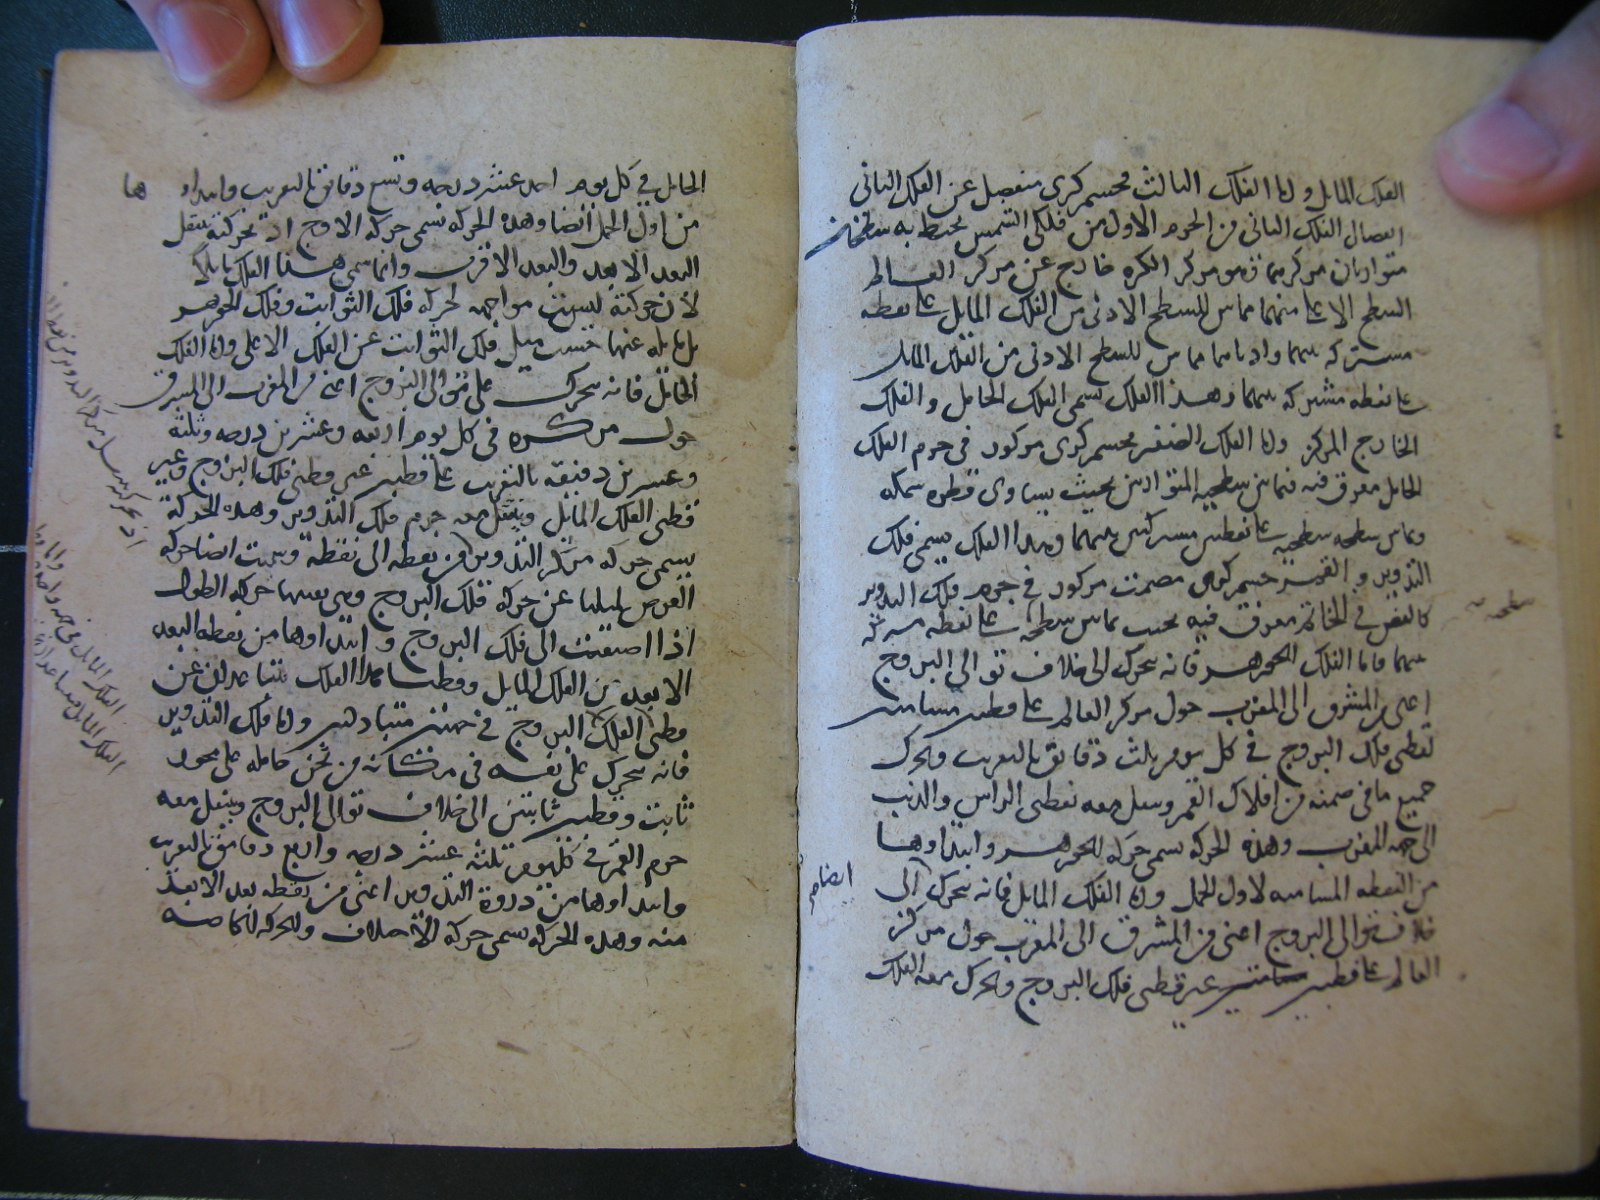 الفلك المايل واما الفلك الثالث فجسم كرى منفصل عن الفلك الثانى
انفصال الفلك الثانى من الجرم الاول من فلكى الشمس يحيط به سطحان
متوازيان مركزهما وهو مركز الكره خارج عن مركز العالم
السطح الاعلى منهما مماس للسطح الادنى من الفلك المايل على نقطه
مشتركه بينهما وادناهما مماس للسطح الادنى من الفلك المايل
على نقطه مشتركه بينهما وهذا الفلك يسمى الفلك الحامل والفلك
الخارج المركز واما الفلك الصغير فجسم كرى مركوز فى جرم الفلك
الحامل مغرق فيه فيما بين سطحيه المتوازيين بحيث يساوى قطره سمكه
ويماس سطحه سطحيه على نقطتين مشتركتين بينهما وهذا الفلك يسمى فلك
التدوير والقمر جسم كرى مصمت مركوز فى جرم فلك التدوير
كالفص فى الخاتم مغرق فيه بحيث يماس سطحه على نقطه مشتركه
بينهما فاما الفلك الجوزهر فانه يتحرك الى خلاف توالى البروج
اعنى من المشرق الى المغرب حول مركز العالم على قطبين مسامتين
لقطبى فلك البروج فى كل يوم ثلث دقايق بالتقريب ويحرك
جميع ما فى ضمنه من افلاك القمر وينتقل معه نقطتى الراس والذنب
الى جهة المغرب وهذه الحركه تسمى حركه الجوزهر وابتداوها
من النقطه المسامته لاول الحمل واما الفلك المايل فانه يتحرك الى
ايضا
خلاف توالى البروج اعنى من المشرق الى المغرب حول مركز
العالم على قطبين غير قطبى فلك البروج ويحرك معه الفلك
الحامل فى كل يوم احد عشر درجه وتسع دقايق بالتقريب وابتداو
ها
من اول الحمل ايضا وهذه الحركه تسمى حركه الاوج اذ بحركته ينتقل
البعد الابعد والبعد الاقرب وانما سمى هذا الفلك مايلا
لان حركته ليست مواجهه لحركه فلك الثوابت وفلك الجوزهر
بل مايله عنها حسب ميل فلك الثوابت عن الفلك الاعلى واما الفلك
الحامل فانه يتحرك على توالى البروج اعنى من المغرب الى المشرق
حول مركزه فى كل يوم اربعه وعشرين درجه وثلثة
وعشرين دقيقه بالتقريب على قطبين غير قطبى فلك البروج وغير
قطبى الفلك المايل وينتقل معه جرم فلك التدوير وهذه الحركة
يسمى حركه مركز التدوير من نقطه الى نقطة وسميت ايضا حركه
العرض لميلها عن حركه فلك البروج وهى بعينها حركه الطول
اذا اضيفت الى فلك البروج وابتداوها من نقطه البعد
الابعد من الفلك المايل وقطبا هذا الفلك يتباعدان عن
قطبى الفلك البروج فى جهتين متبادلتين واما فلك التدوير
فانه يتحرك على نفسه فى مكانه من ثخن حامله على محور
ثابت وقطبين ثابتين الى خلاف توالى البروج وينتقل معه
جرم القمر فى كل يوم ثلثه عشر درجه واربع دقايق بالتقريب
وابتداوها من ذروة التدوير اعنى من نقطه بعد الابعد
منه وهذه الحركه تسمى حركه الاختلاف والحركه الخاصه